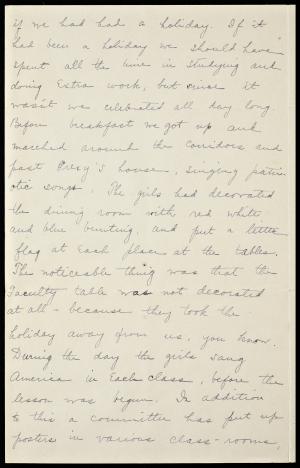 if we had had a holiday. If it
had been a holiday we should have
spent all the time in studying and
doing Extra work, but since it
wasn't we celebrated all day long.
Before breakfast we got up and
marched around the corridors and
past Prexy's house, singing patri-
otic songs. The girls had decorated
the dining room with red white,
and blue bunting, and put a little
flag at Each place at the tables.
The noticeable thing was that the
Faculty table was not decorated
at all - because they took the
holiday away from us, you know.
During the day the girls sang
America in Each class, before the
lesson was begun. In addition
to this a committee has put up
posters in various class-rooms,